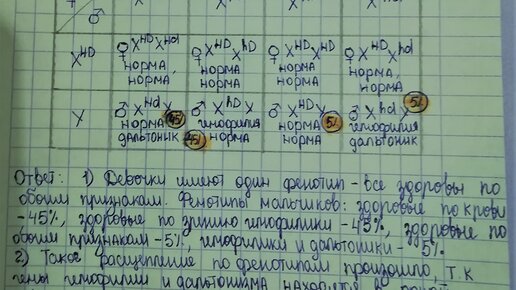 ♀
♂
X^HD ♀X^HD X^Hd ♀X^HD X^hD ♀X^HD X^HD ♀X^HD X^hd
норма, норма норма, норма,
норма норма норма норма
Y ♂X^Hd Y 45% ♂X^hD Y ♂X^HD Y 5% ♂X^hd Y 5%
норма гемофилия норма гемофилия
дальтоник 45% норма норма дальтоник
Ответ: 1) Девочки имеют один фенотип - все здоровы по
обоим признакам. Фенотипы мальчиков: здоровые по крови
-45%, здоровые по зрению гемофилики - 45%, здоровые по
обоим признакам - 5%, гемофилики и дальтоники - 5%
2) Такое расщепление по фенотипам произошло, т.к
гены гемофилии и дальтонизма находятся в